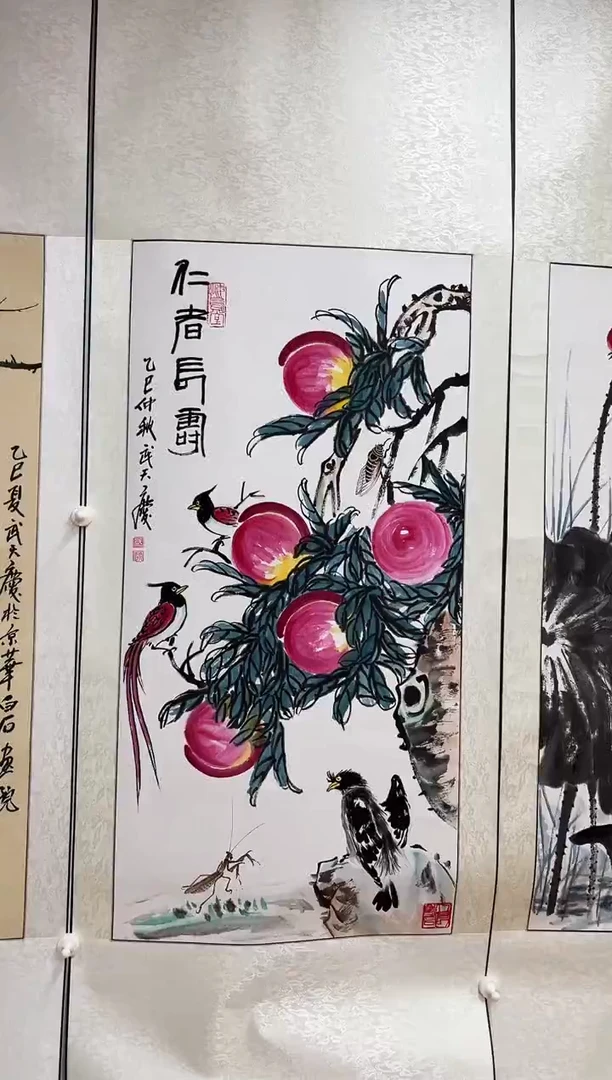 仁者長壽
乙巳仲秋武天慶
乙巳夏武天慶於京華白石畫院